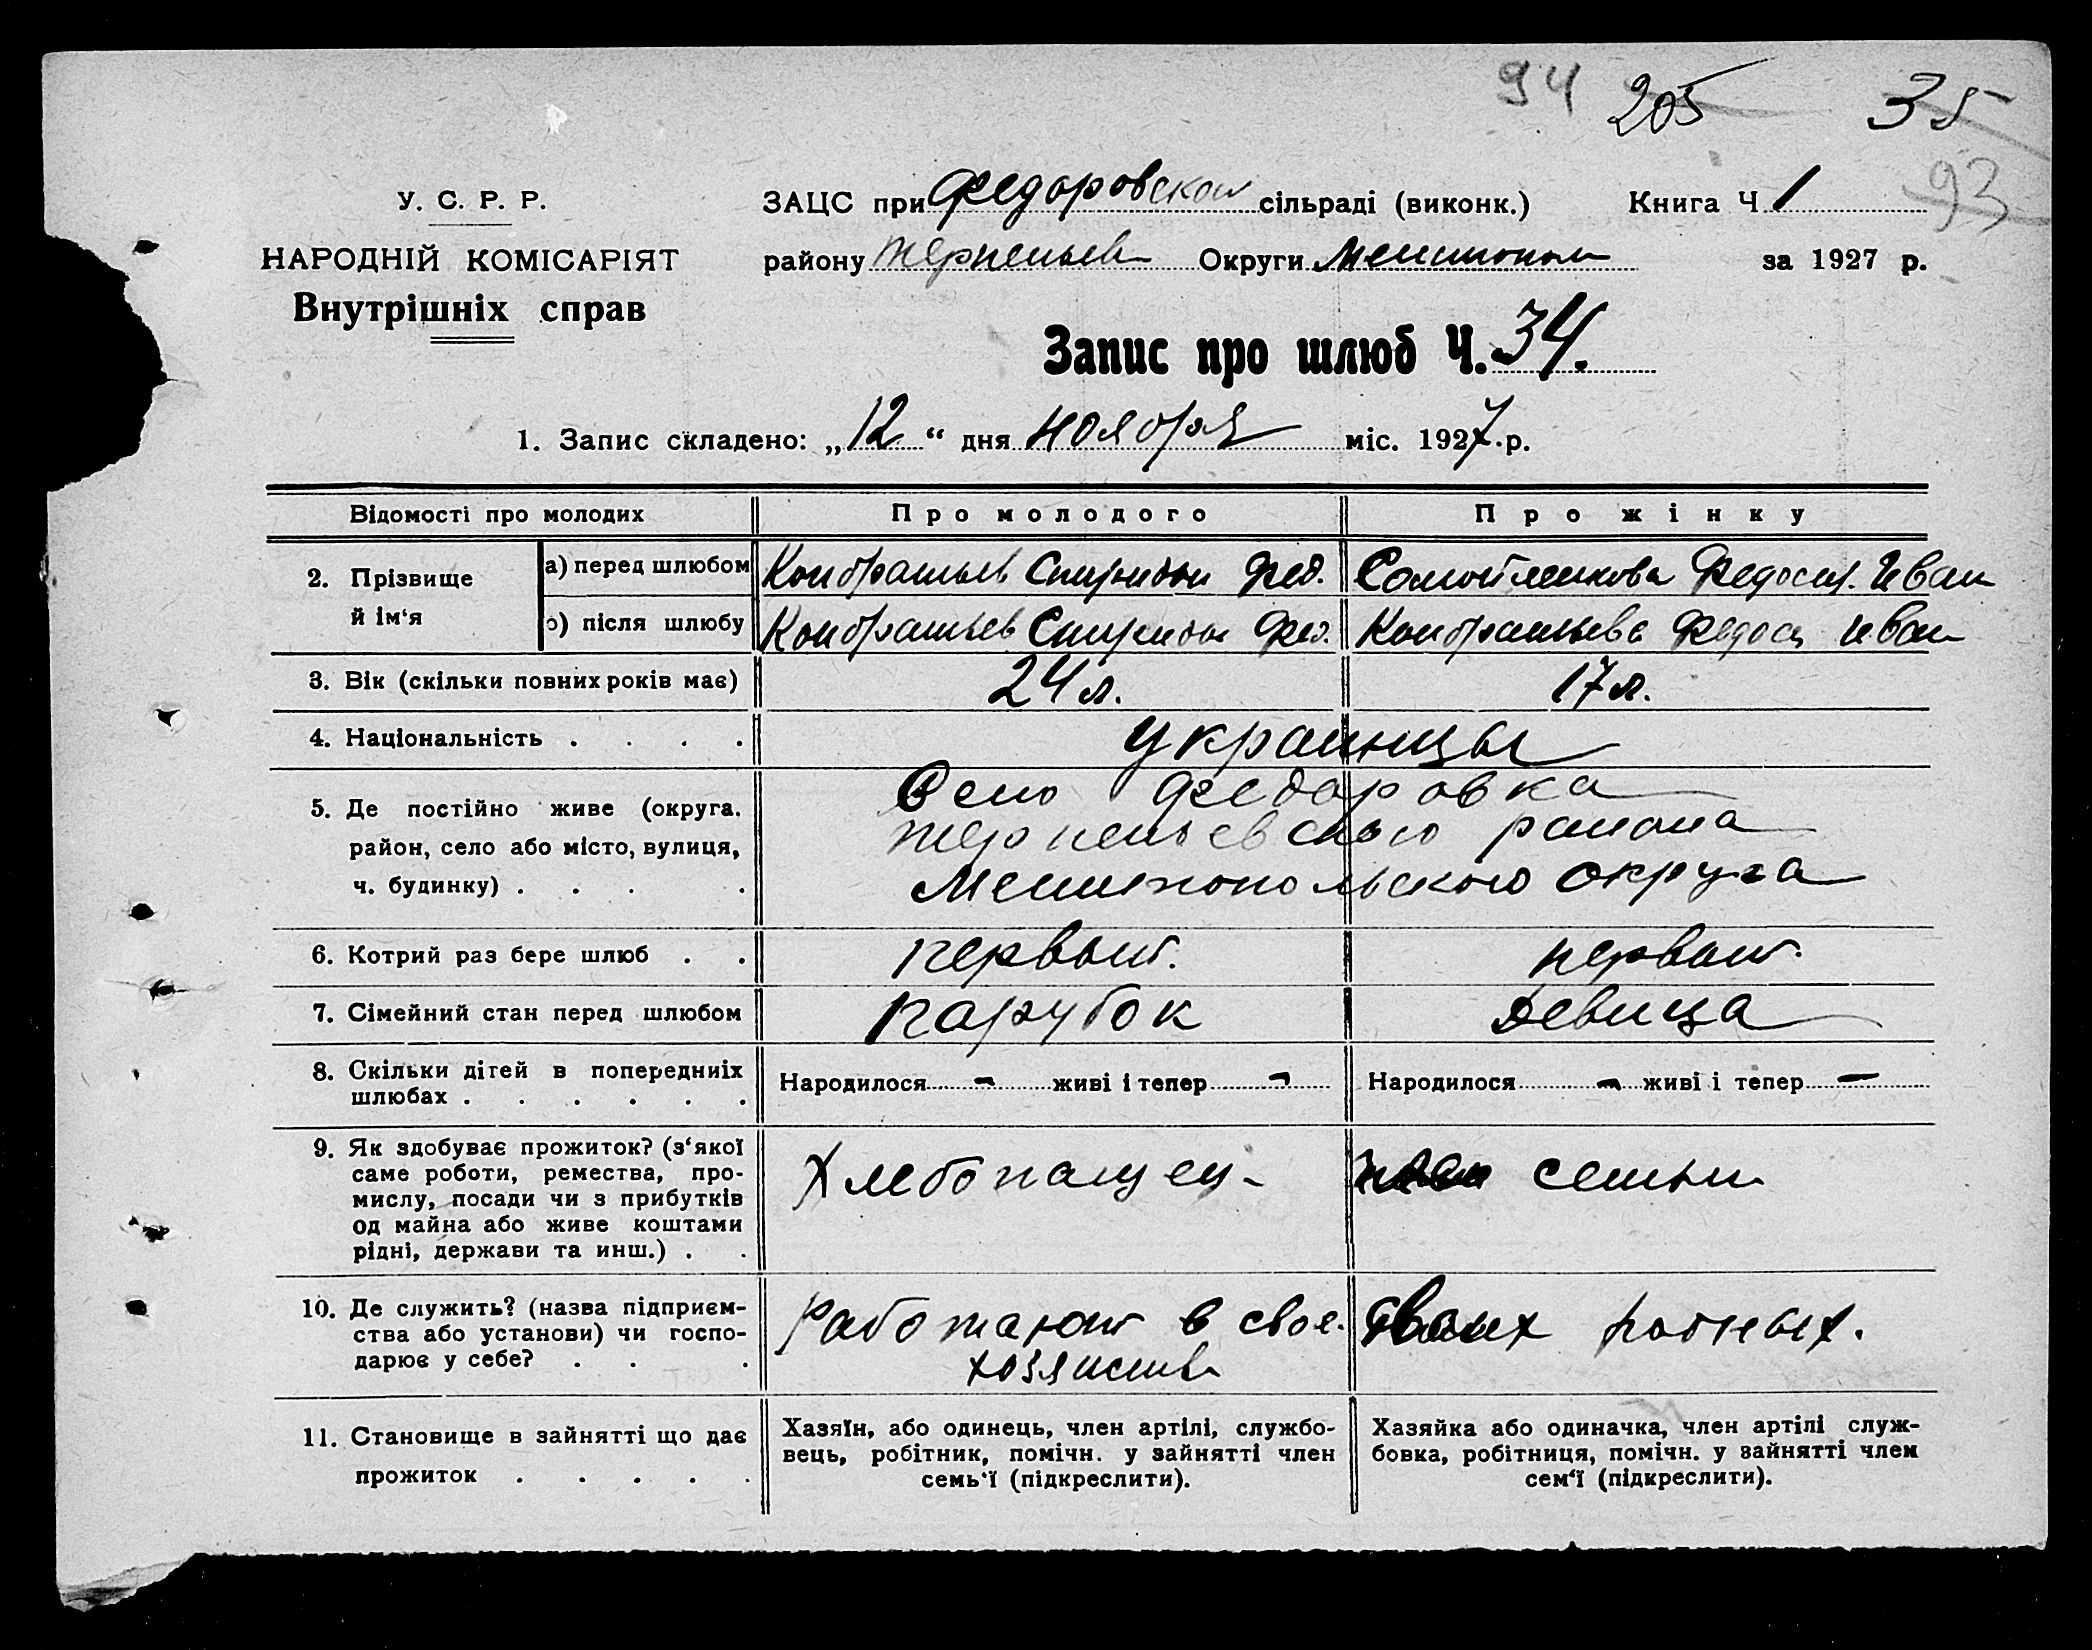 94 205 35
93
У. С. Р. Р.
НАРОДНІЙ КОМІСАРІЯТ
Внутрішніх справ
ЗАЦС при Федоровской сільраді (виконк.) Книга Ч 1
району Терпеньев Округи Мелитополь за 1927 р.
Запис про шлюб Ч. 34.
1. Запис складено: „12“ дня ноября міс. 1927 р.
Відомості про молодих Про молодого Про жінку
2. Прізвище й ім‘я
а) перед шлюбом Кондратьев Спиридон Фед. Самойленкова Федос. Иван
б) після шлюбу Кондратьев Спиридон Фед. Кондратьева Федос Иван
3. Вік (скільки повних років має) 24 л. 17 л.
4. Національність . . . . украинцы
5. Де постійно живе (округа, Село Федоровка
район, село або місто, вулиця, терпеньевского района
ч. будинку) . . . . Мелитопольского округа
6. Котрий раз бере шлюб . . первый. первый.
7. Сімейний стан перед шлюбом парубок девица
8. Скільки дітей в попередниіх
шлюбах . . . . . . Народилося - живі і тепер - Народилося - живі і тепер -
9. Як здобуває прожиток? (з‘якої
саме роботи, ремества, про-
мислу, посади чи з прибутків
од майна або живе коштами
рідні, держави та инш.) . .
Хлебопашец - семьи
10. Де служить? (назва підприєм-
ства або установи) чи госпо-
дарює у себе? . . .
Работают в свое.
хозяйстве
своих родных.
11. Становище в зайнятті що дає
прожиток . . . . .
Хазяїн, або одинець, член артілі, службо-
вець, робітник, помічн. у зайнятті член
семь‘ї (підкреслити).
Хазяйка або одиначка, член артілі служ-
бовка, робітниця, помічн. у зайнятті член
сем‘ї (підкреслити).